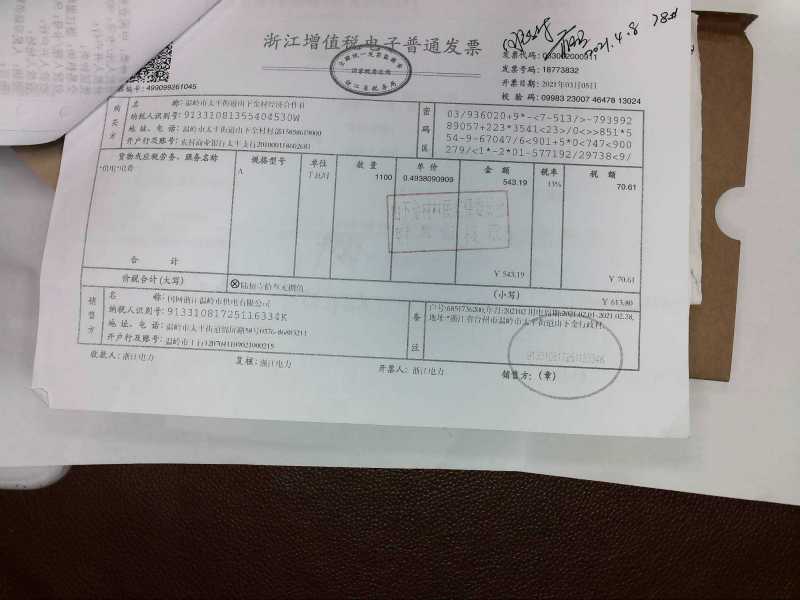 浙江增值税电子普通发票
国家税务总局
浙江省税务局
2021.4.8
发票代码:033002000511
发票号码:18773832
开票日期:2021年03月05日
校验码:09983 23007 46478 13024
编号:499099261045
购买方
名称:温岭市太平街道山下金村经济合作社
纳税人识别号:91331081355404530W
地址、电话:温岭市太平街道山下金村村部15858618000
开户行及账号:农村商业银行太平支行201000118602681
密码区
03/936020+9*-<7-513/>-793992
89057+223*3541<23>/0<>>851*5
54-9-67047/6<901+5*0<747<900
279/<1*-2*01-577192/29738<9/
货物或应税劳务、服务名称 规格型号 单位 数量 单价 金额 税率 税额
*供电*电费 A 千瓦时 1100 0.4938090909 543.19 13% 70.61
合计 ¥ 543.19 ¥ 70.61
价税合计(大写) ⊗陆佰壹拾叁元捌角 (小写) ¥ 613.80
销售方
名称:国网浙江温岭市供电有限公司
纳税人识别号:91331081725116334K
地址、电话:温岭市太平街道锦屏路58号0576-86083211
开户行及账号:温岭市工行1207041109021000215
备注
户号:6851736200,年月:202102,用电周期:2021.02.01-2021.02.28,
地址:*浙江省台州市温岭市太平街道山下金行政村
91331081725116334K
收款人:浙江电力 复核:浙江电力 开票人:浙江电力 销售方:(章)